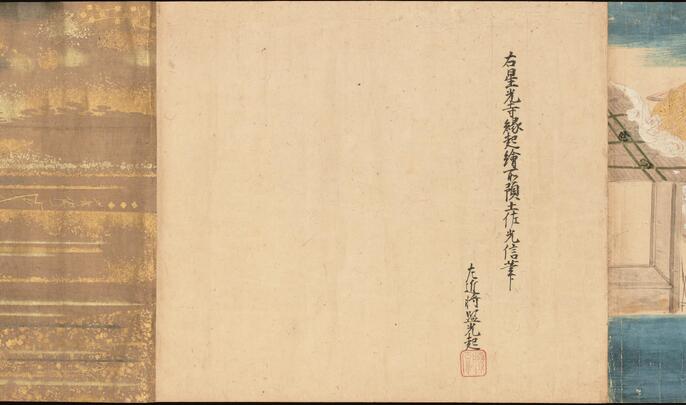 右星光寺縁起繪所預土佐光信筆
左近将監光起